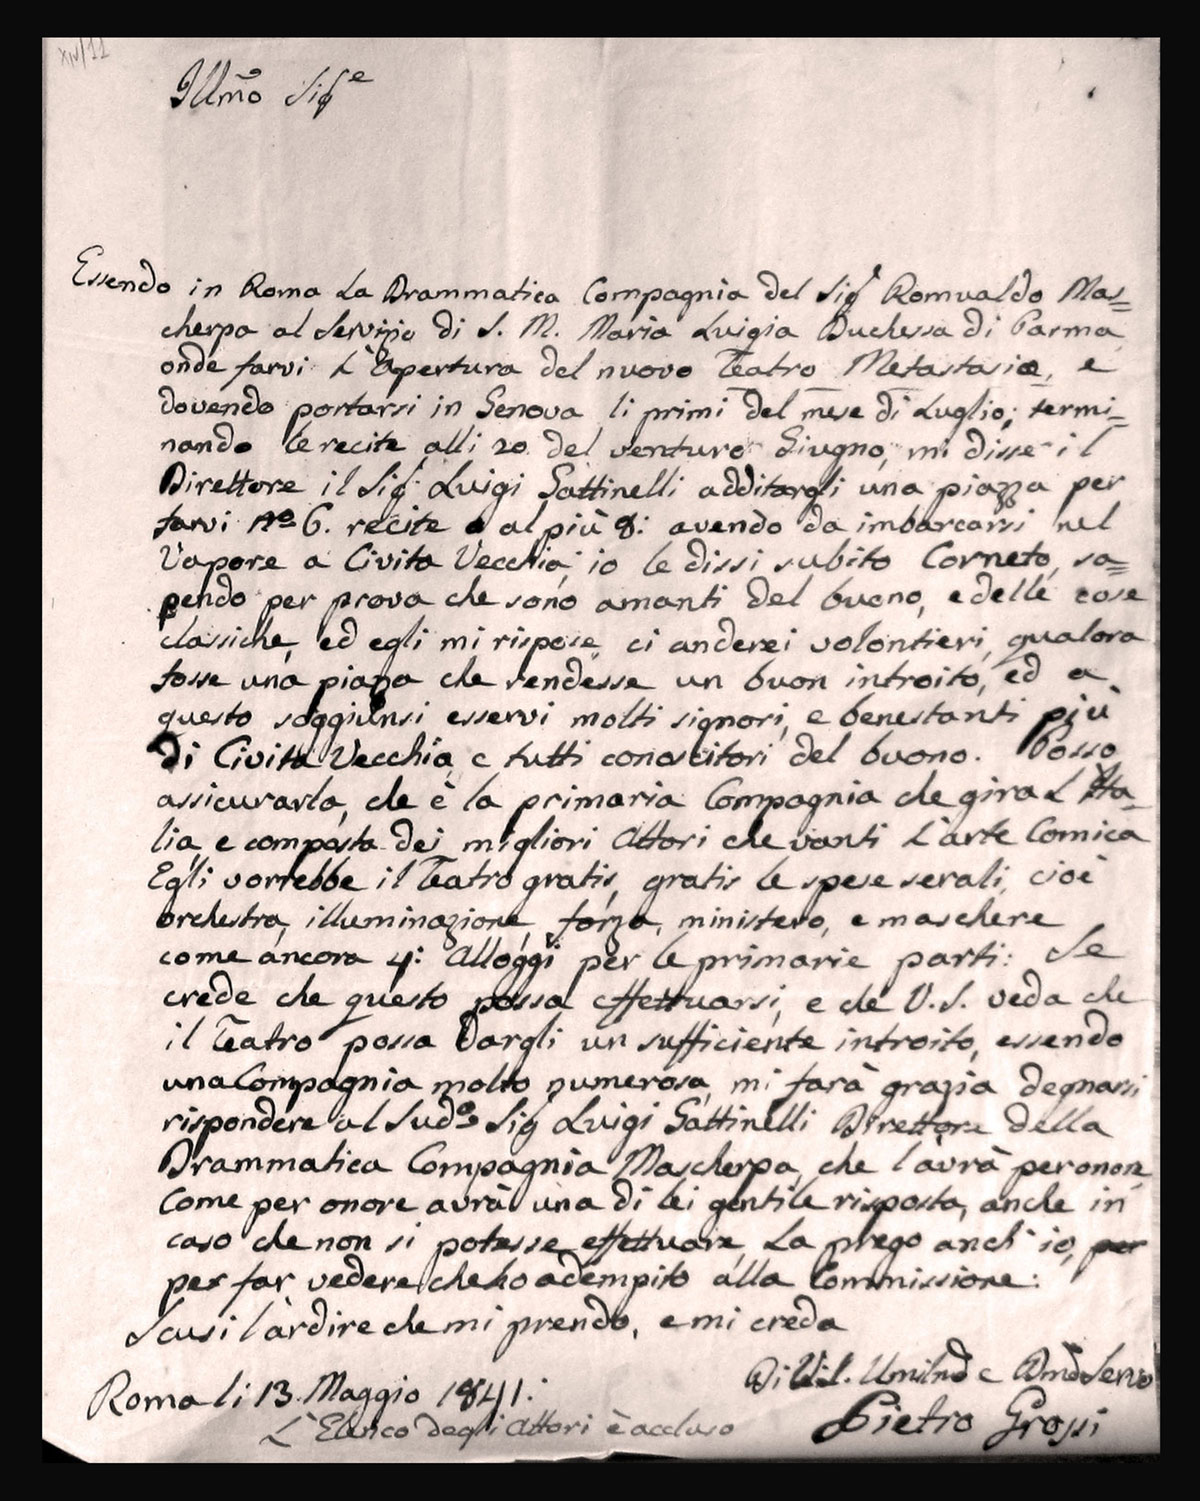 XIV/11
Illmo Sige
Essendo in Roma La Drammatica Compagnia del Sig Romualdo Mas=
cherpa al Servizio di S. M. Maria Luigia Duchessa di Parma,
onde farvi L'Apertura del nuovo Teatro Metastasio, e
dovendo portarsi in Genova li primi del mese di Luglio; termi=
nando le recite alli 20 del venturo Giugno, mi disse il
Direttore il Sig. Luigi Gattinelli additargli una piazza per
farvi No 6. recite o al più 8: avendo da imbarcarsi nel
Vapore a Civita Vecchia; io le dissi subito Corneto, sa=
pendo per prova che sono amanti del buono, e delle cose
classiche, ed egli mi rispose, ci anderei volontieri, qualora
fosse una piazza che rendesse un buon introito, ed a
questo soggiunsi esservi molti signori, e benestanti più
di Civita Vecchia e tutti conoscitori del buono. Posso
assicurarla, che è la primaria Compagnia che gira L'Ita=
lia, e composta dei migliori Attori che vanti L'arte Comica
Egli vorrebbe il Teatro gratis, gratis le spese serali, cioè
orchestra, illuminazione, forza, ministero, e maschere
come ancora 4: Alloggi per le primarie parti: Se
crede che questo possa effettuarsi, e che V. S. veda che
il Teatro possa Dargli un sufficiente introito, essendo
una Compagnia molto numerosa, mi farà grazia degnarsi
rispondere al Sudo Sig Luigi Gattinelli Direttore della
Drammatica Compagnia Mascherpa, che l'avrà per onore
Come per onore avrà una di lei gentile risposta, anche in
caso che non si potesse effettuare, La prego anch'io, per
per far vedere che ho adempito alla Commissione:
Scusi l'ardire che mi prendo, e mi creda
Di V.S. Umilmo e Dmo Servo
Roma li 13. Maggio 1841:
Pietro Grossi
L'Elenco degli Attori è accluso